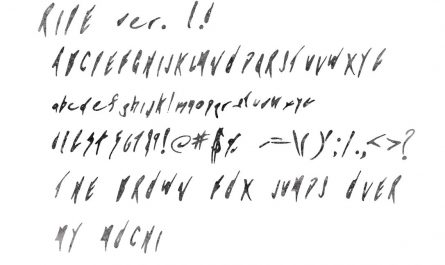 RIPE ver. 1.1
ABCDEFGHIJKLMNOPQRSTUVWXYZ
abcdefghijklmnopqrstuvwxyz
THE BROWN FOX JUMPS OVER
MY MOCHI